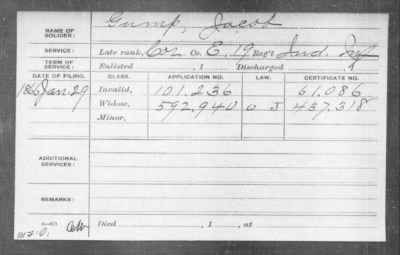 NAME OF SOLDIER: Gump, Jacob
SERVICE: Late rank, Cor Co. E, 19 Reg't Ind. Inf
TERM OF SERVICE: Enlisted , 1 Discharged , 1
DATE OF FILING. CLASS. APPLICATION NO. LAW. CERTIFICATE NO.
1866 Jan. 29 Invalid, 101.236 61.086
Widow, 592.940 O S 437.318
Minor,
ADDITIONAL SERVICES:
REMARKS:
Died , 1 , at